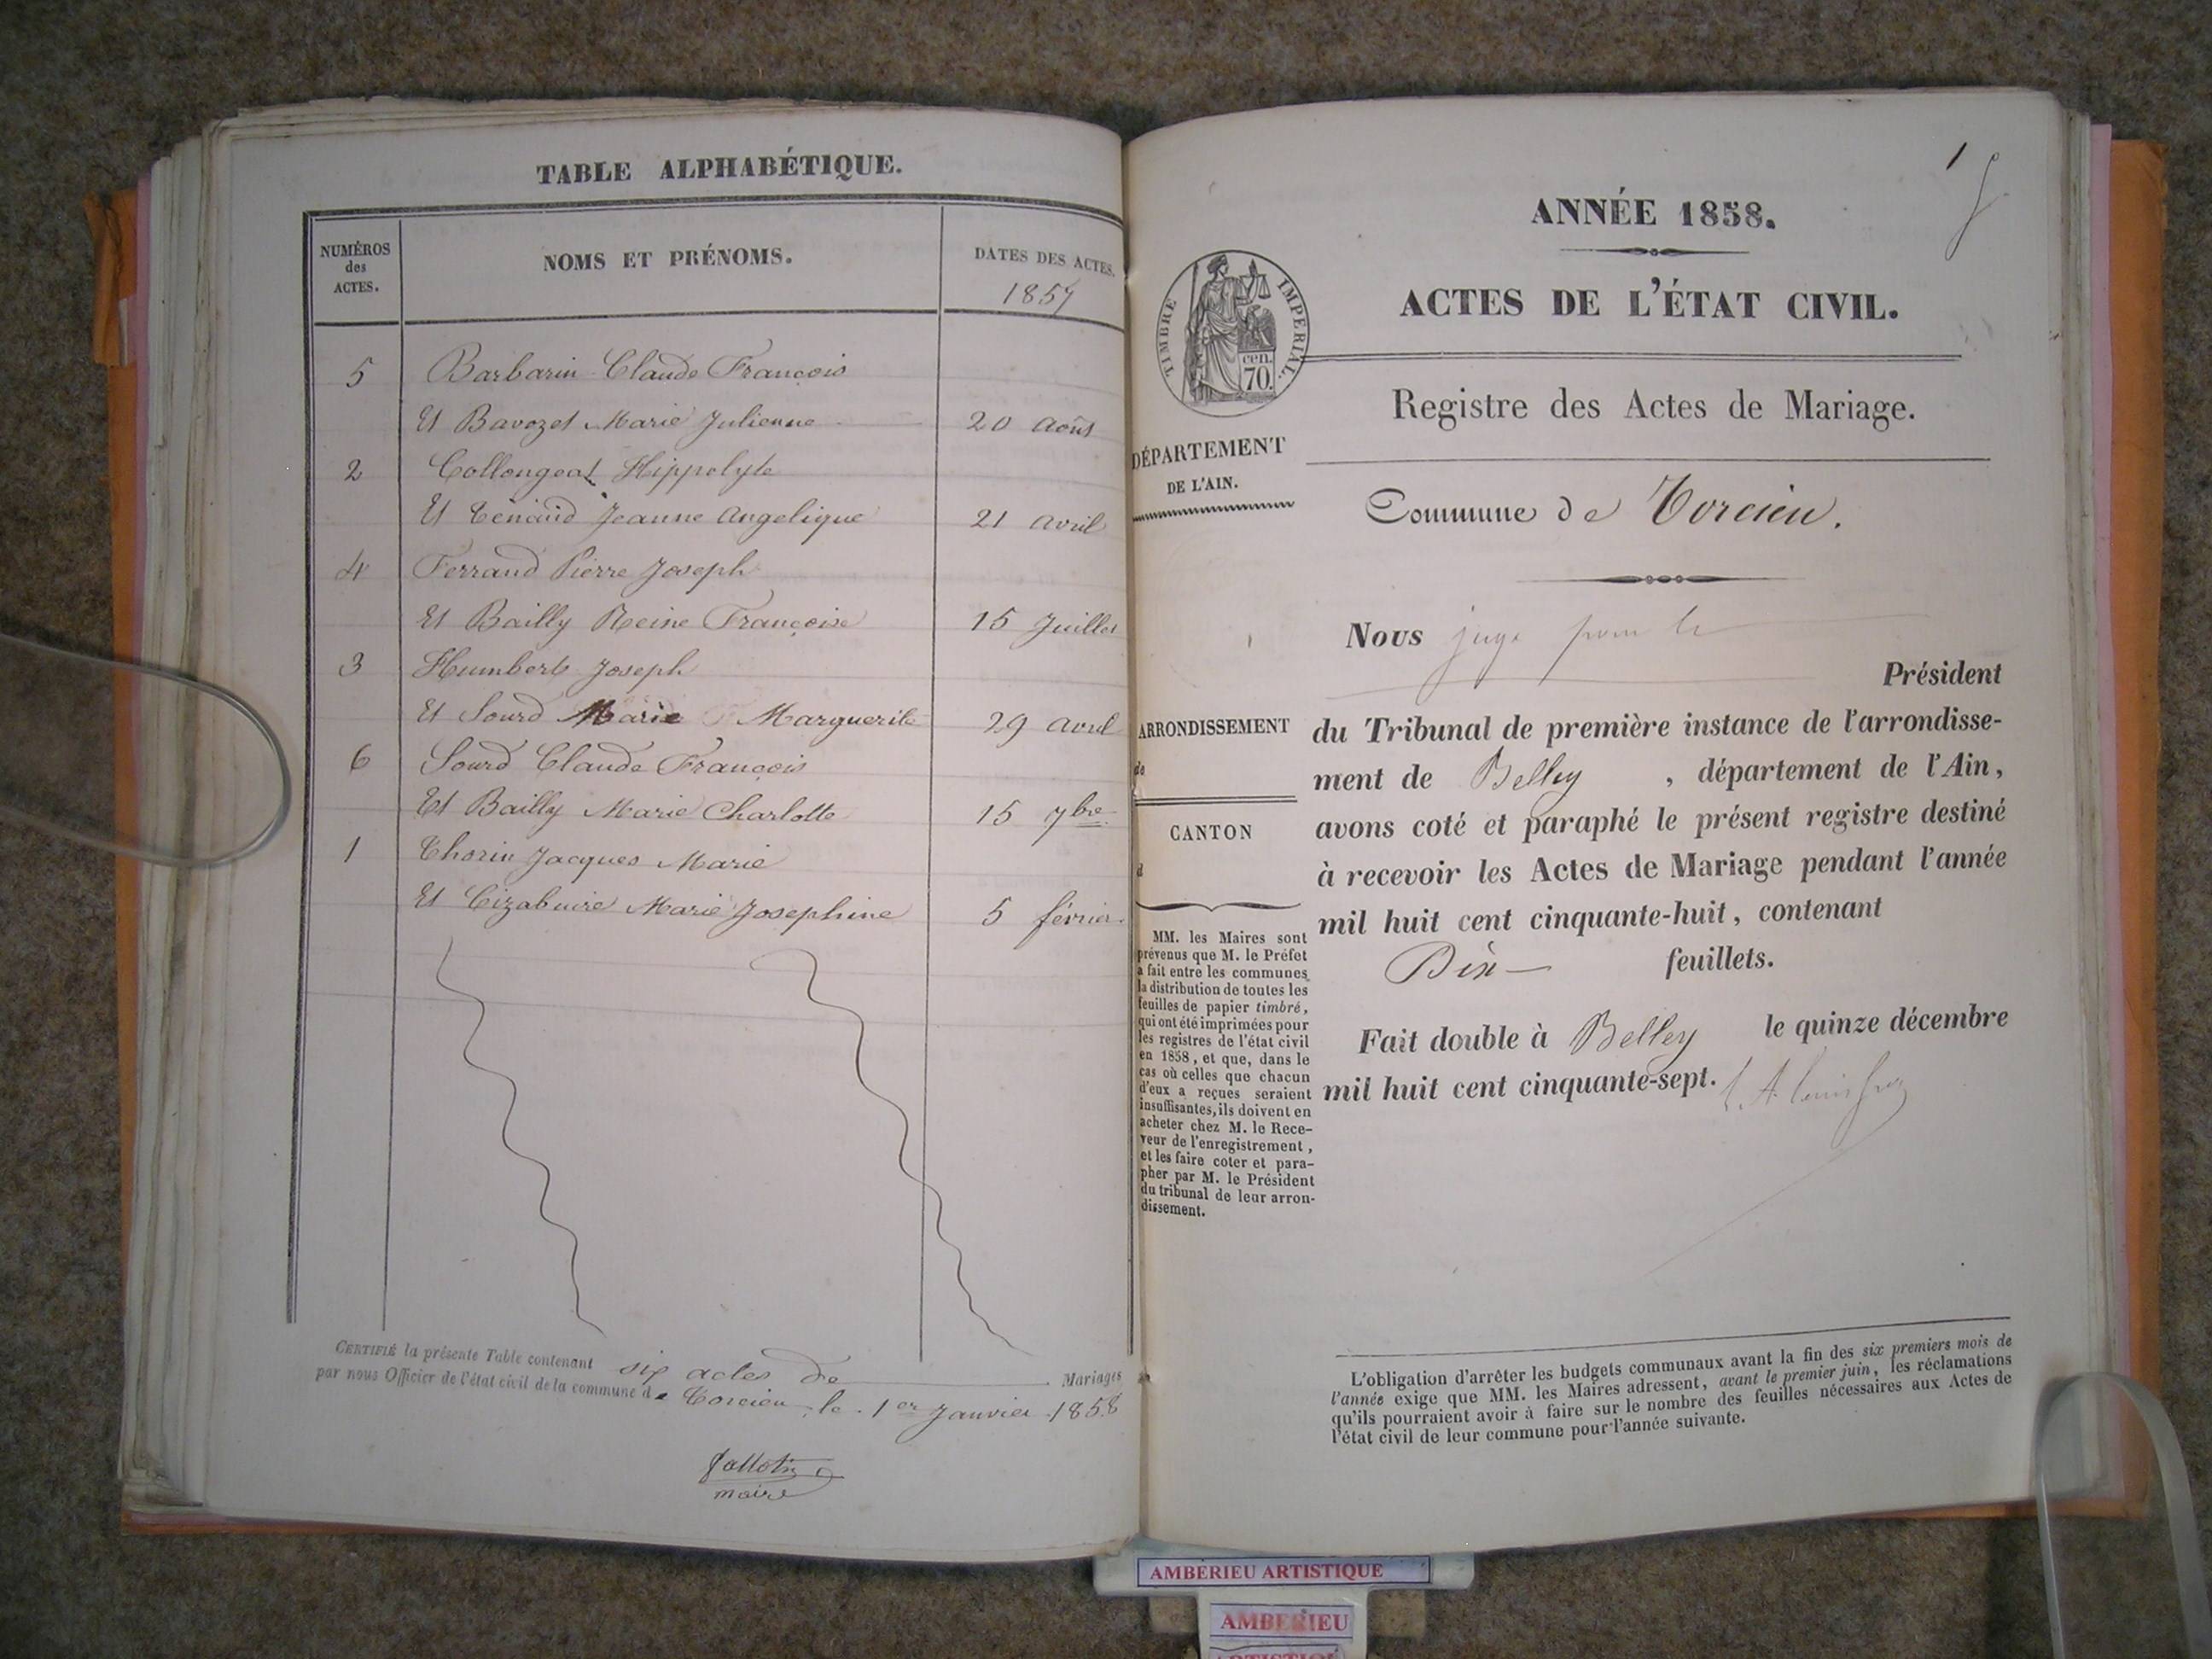 TABLE ALPHABÉTIQUE.
NUMÉROS
des
ACTES.
NOMS ET PRÉNOMS.
DATES DES ACTES.
1857
5 Barbarin Claude François
Et Bavozet Marie Julienne 20 Août
2 Collongeat Hippolyte
Et Tenand Jeanne Angelique 21 avril
4 Ferrand Pierre Joseph
Et Bailly Reine Françoise 15 Juillet
3 Humbert Joseph
Et Sourd Marie Marguerite 29 avril
6 Sourd Claude François
Et Bailly Marie Charlotte 15 7bre
1 Thorin Jacques Marie
Et Cizabuire Marie Josephine 5 février
CERTIFIÉ la présente Table contenant six actes de Mariages
par nous Officier de l'état civil de la commune de Torcieu, le 1er Janvier 1858
maire
1
ANNÉE 1858.
ACTES DE L'ÉTAT CIVIL.
TIMBRE IMPERIAL.
cen.
70.
Registre des Actes de Mariage.
DÉPARTEMENT
DE L'AIN.
Commune de Torcieu.
Nous juge pour le
Président
du Tribunal de première instance de l'arrondisse-
ment de Belley, département de l'Ain,
avons coté et paraphé le présent registre destiné
à recevoir les Actes de Mariage pendant l'année
mil huit cent cinquante-huit, contenant
Dix feuillets.
Fait double à Belley le quinze décembre
mil huit cent cinquante-sept.
ARRONDISSEMENT
de
CANTON
d
MM. les Maires sont
prévenus que M. le Préfet
a fait entre les communes
la distribution de toutes les
feuilles de papier timbré,
qui ont été imprimées pour
les registres de l'état civil
en 1858, et que, dans le
cas où celles que chacun
d'eux a reçues seraient
insuffisantes, ils doivent en
acheter chez M. le Rece-
veur de l'enregistrement,
et les faire coter et para-
pher par M. le Président
du tribunal de leur arron-
dissement.
L'obligation d'arrêter les budgets communaux avant la fin des six premiers mois de
l'année exige que MM. les Maires adressent, avant le premier juin, les réclamations
qu'ils pourraient avoir à faire sur le nombre des feuilles nécessaires aux Actes de
l'état civil de leur commune pour l'année suivante.
AMBERIEU ARTISTIQUE
AMBERIEU
ARTISTIQUE